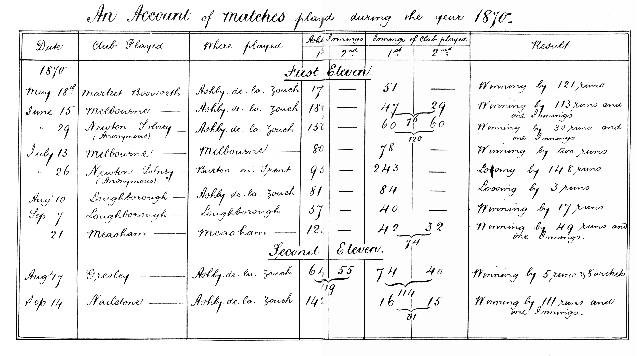 An Account of matches playd during the year 1870.
Date Club Played Where played Innings Innings of Club played Result
2nd 1st 2nd
1870 First Eleven
May 18th Market Bosworth Ashby de la Zouch 17 — 51 — Winning by 121 runs
June 15 Melbourne — Ashby de la Zouch 18 — 47 29 Winning by 113 runs and one Innings
76
" 29 Newton Solney — Ashby de la Zouch 15 — 60 60 Winning by runs and one Innings
(Anonymous)
120
July 13 Melbourne — Melbourne — 80 — 78 — Winning by two runs
" 26 Newton Solney Burton on Trent 95 — 243 — Losing by 148 runs
(Anonymous)
Aug 10 Loughborough — Ashby de la Zouch 81 — 84 — Losing by 3 runs
Sep 7 Loughborough — Loughborough 57 — 40 — Winning by 17 runs
21 Measham — Measham — 12 — 42 32 Winning by 49 runs and one Innings.
74
Second Eleven
Aug 17 Gresley — Ashby de la Zouch 64 55 74 40 Winning by 5 runs
19 114
Sep 14 Nailstone — Ashby de la Zouch 14 — 16 15 Winning by 111 runs and one Innings.
31